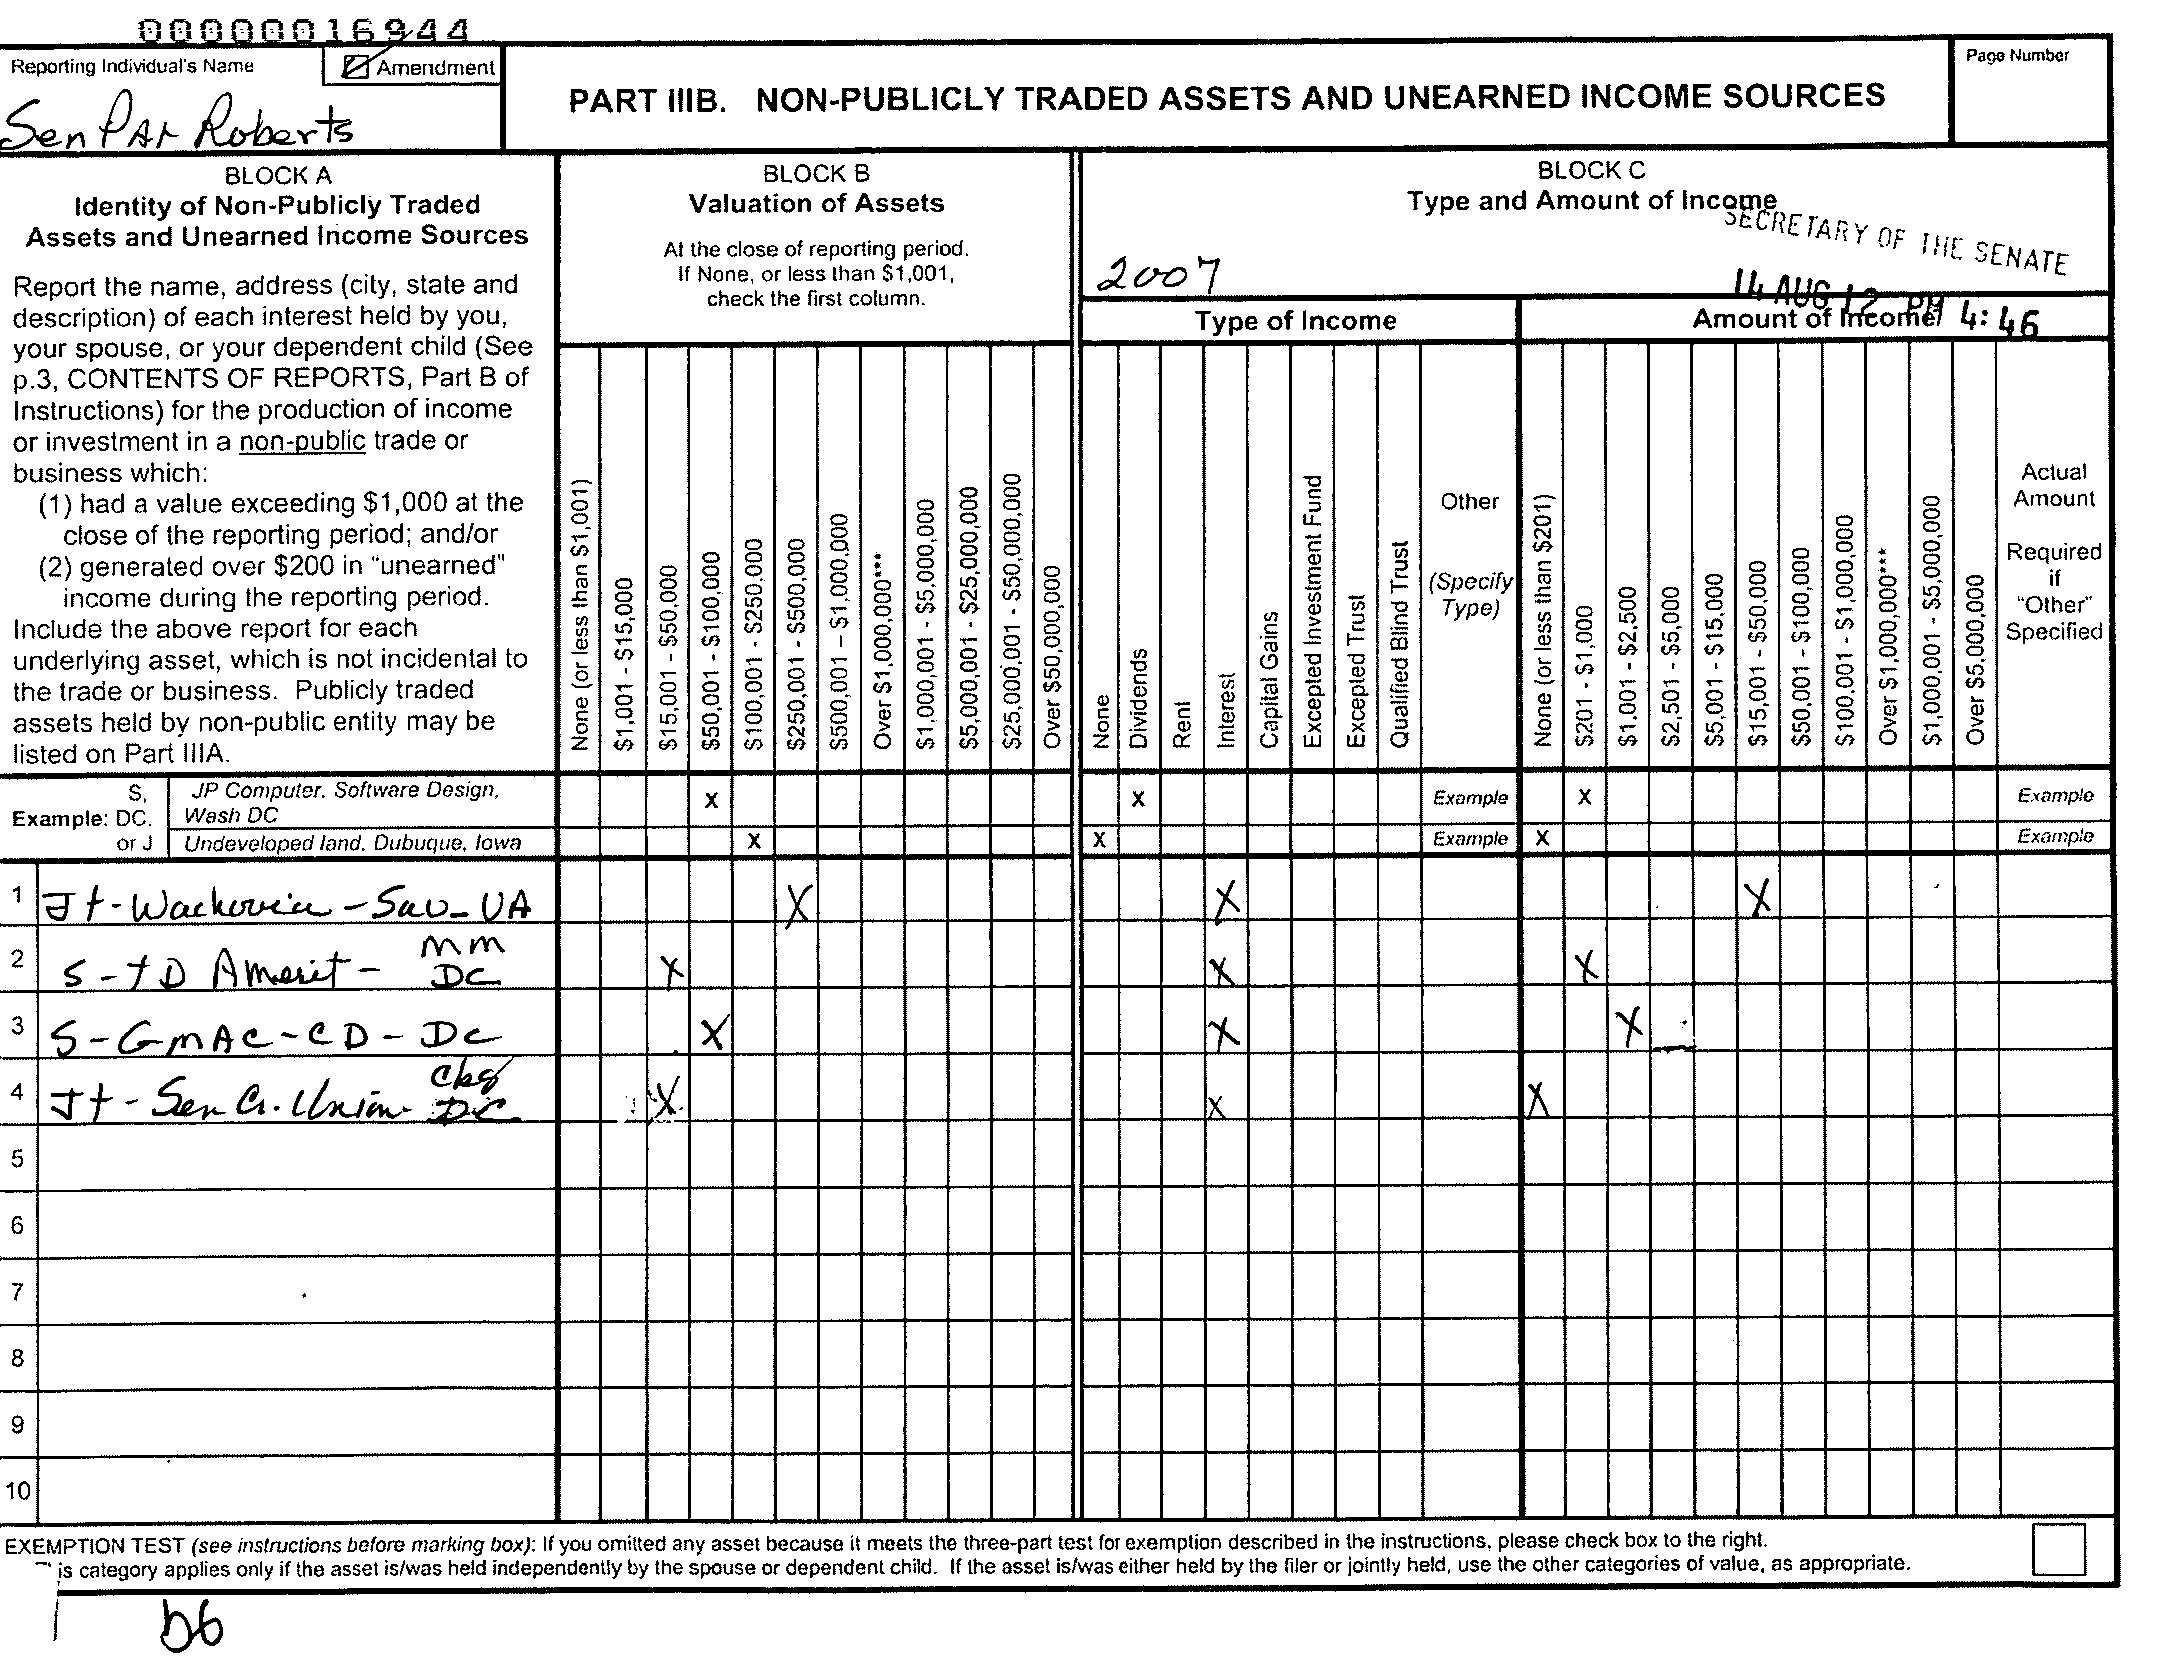 00000016944
Reporting Individual's Name
Amendment
Sen PAt Roberts
PART IIIB. NON-PUBLICLY TRADED ASSETS AND UNEARNED INCOME SOURCES
Page Number
BLOCK A
Identity of Non-Publicly Traded
Assets and Unearned Income Sources
Report the name, address (city, state and
description) of each interest held by you,
your spouse, or your dependent child (See
p.3, CONTENTS OF REPORTS, Part B of
Instructions) for the production of income
or investment in a non-public trade or
business which:
(1) had a value exceeding $1,000 at the
close of the reporting period; and/or
(2) generated over $200 in "unearned"
income during the reporting period.
Include the above report for each
underlying asset, which is not incidental to
the trade or business. Publicly traded
assets held by non-public entity may be
listed on Part IIIA.
BLOCK B
Valuation of Assets
At the close of reporting period.
If None, or less than $1,001,
check the first column.
None (or less than $1,001)
$1,001 - $15,000
$15,001 - $50,000
$50,001 - $100,000
$100,001 - $250,000
$250,001 - $500,000
$500,001 - $1,000,000
Over $1,000,000***
$1,000,001 - $5,000,000
$5,000,001 - $25,000,000
$25,000,001 - $50,000,000
Over $50,000,000
BLOCK C
Type and Amount of Income
SECRETARY OF THE SENATE
2007
14 AUG 12 PM 4:46
Type of Income
Amount of Income
None
Dividends
Rent
Interest
Capital Gains
Excepted Investment Fund
Excepted Trust
Qualified Blind Trust
Other
(Specify
Type)
None (or less than $201)
$201 - $1,000
$1,001 - $2,500
$2,501 - $5,000
$5,001 - $15,000
$15,001 - $50,000
$50,001 - $100,000
$100,001 - $1,000,000
Over $1,000,000***
$1,000,001 - $5,000,000
Over $5,000,000
Actual
Amount
Required
if
"Other"
Specified
Example: S, DC, or J
JP Computer, Software Design,
Wash DC X X Example X Example
Undeveloped land, Dubuque, Iowa X X Example X Example
1 Jt - Wachovia - Sav - VA X X X
2 S - TD Amerit - MM DC X X X
3 S - GMAC - CD - DC X X X
4 Jt - Sen Cr. Union - Ckg DC X X X
5
6
7
8
9
10
EXEMPTION TEST (see instructions before marking box): If you omitted any asset because it meets the three-part test for exemption described in the instructions, please check box to the right.
is category applies only if the asset is/was held independently by the spouse or dependent child. If the asset is/was either held by the filer or jointly held, use the other categories of value, as appropriate.
b6